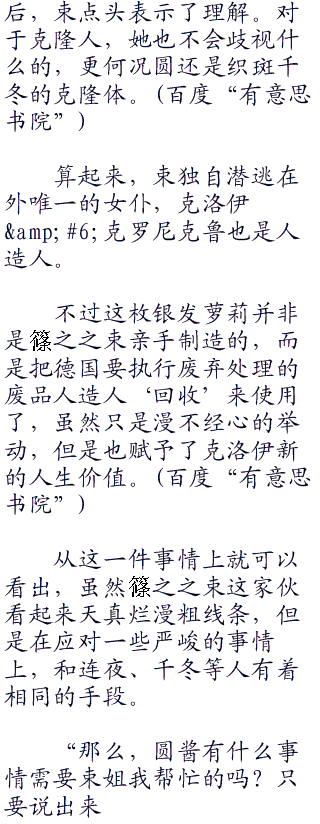 后，束点头表示了理解。对
于克隆人，她也不会歧视什
么的，更何况圆还是织斑千
冬的克隆体。(百度“有意思
书院”)
算起来，束独自潜逃在
外唯一的女仆，克洛伊
&amp;#6;克罗尼克鲁也是人
造人。
不过这枚银发萝莉并非
是篠之之束亲手制造的，而
是把德国要执行废弃处理的
废品人造人‘回收’来使用
了，虽然只是漫不经心的举
动，但是也赋予了克洛伊新
的人生价值。(百度“有意思
书院”)
从这一件事情上就可以
看出，虽然篠之之束这家伙
看起来天真烂漫粗线条，但
是在应对一些严峻的事情
上，和连夜、千冬等人有着
相同的手段。
“那么，圆酱有什么事
情需要束姐我帮忙的吗？只
要说出来